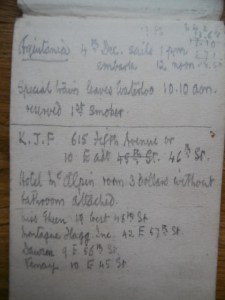 Aquitania 4th Dec. sails 1 pm
embark 12 noon
Special train leaves Waterloo 10.10 am.
reserved 1st smoker
K.J.F 615 Fifth Avenue or
10 East 45th St. 46th St.
Hotel McAlpin room 3 Dollars without
bathroom attached
19 West 48th St
Montague Flagg Inc. 42 E 57th St.
9 E 56th St
10 E 45 St